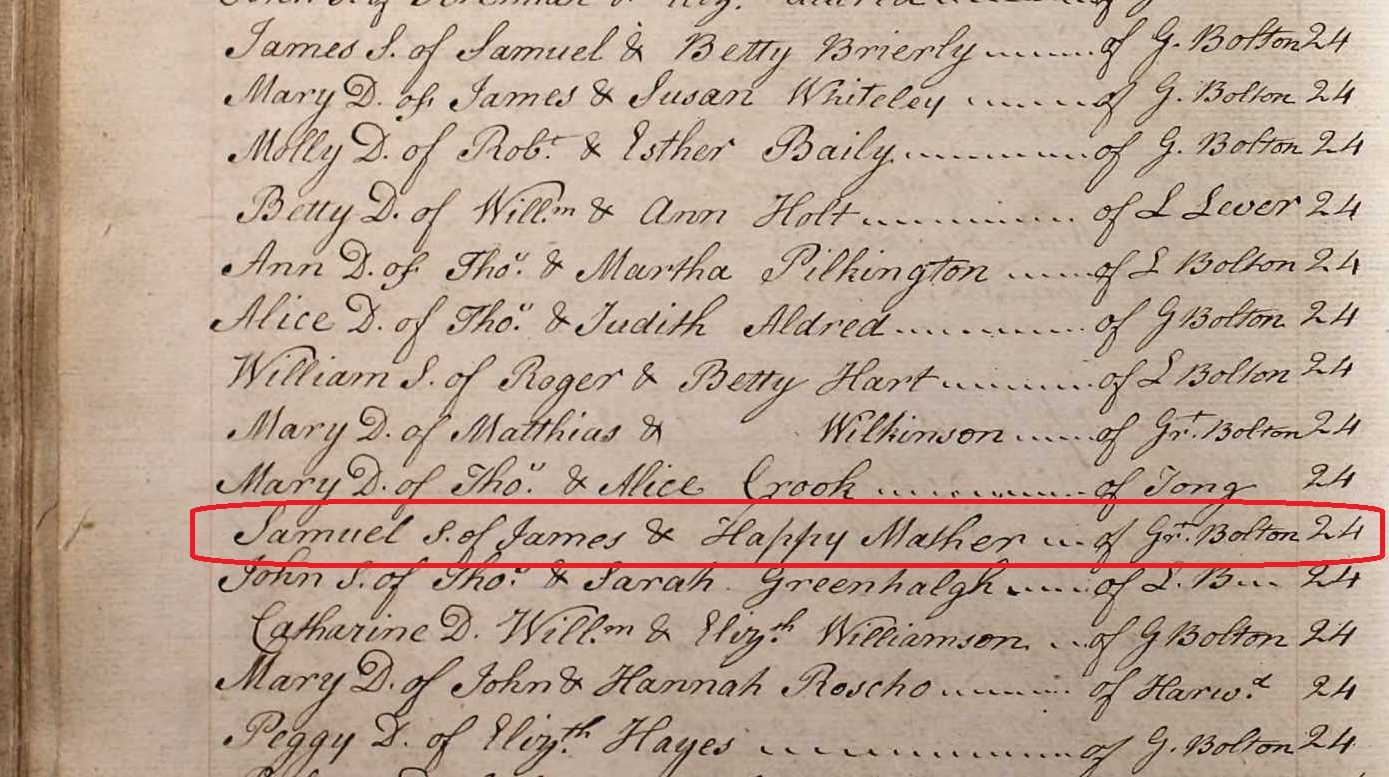 James S. of Samuel & Betty Brierly ........ of G. Bolton 24
Mary D. of James & Susan Whiteley ........ of G. Bolton 24
Molly D. of Robt. & Esther Baily ........ of G. Bolton 24
Betty D. of Will.m & Ann Holt ........ of L Lever 24
Ann D. of Thos. & Martha Pilkington ........ of L Bolton 24
Alice D. of Thos. & Judith Aldred ........ of G Bolton 24
William S. of Roger & Betty Hart ........ of L Bolton 24
Mary D. of Matthias & Wilkinson ........ of Grt. Bolton 24
Mary D. of Thos. & Alice Crook ........ of Tong 24
Samuel S. of James & Happy Mather .... of Grt. Bolton 24
John S. of Thos. & Sarah Greenhalgh ...... of L. B... 24
Catharine D. Will.m & Elizth Williamson ... of G Bolton 24
Mary D. of John & Hannah Roscho ........ of Harw.d 24
Peggy D. of Elizth. Hayes ........ of G. Bolton 24